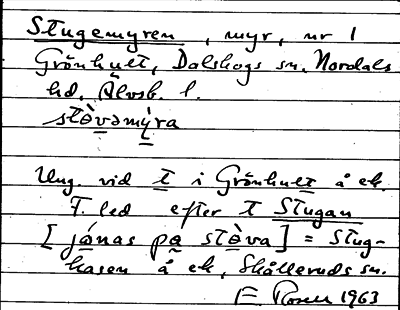 Stugemyren, myr, nr 1
Grönhult, Dalskogs sn. Nordals
hd, Älvsb. l.
stòvəmỳra
Ung. vid t i Grönhult å ek.
F. led efter t Stugan
[jònas pɑ stòva] = Stug-
kasen å ek, Skålleruds sn.
E Rosell 1963